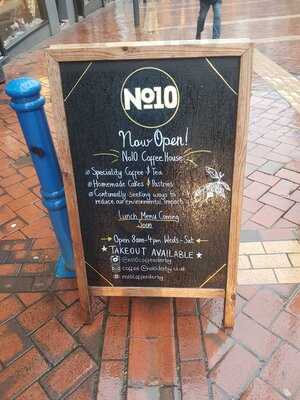 No10
Now Open!
No10 Coffee House
Speciality Coffee & Tea
Homemade Cakes & Pastries
Continually Seeking ways to
reduce our environmental impact
Lunch Menu Coming
Soon
Open 8am-4pm Weds-Sat
★TAKEOUT AVAILABLE★
no10coffeederby